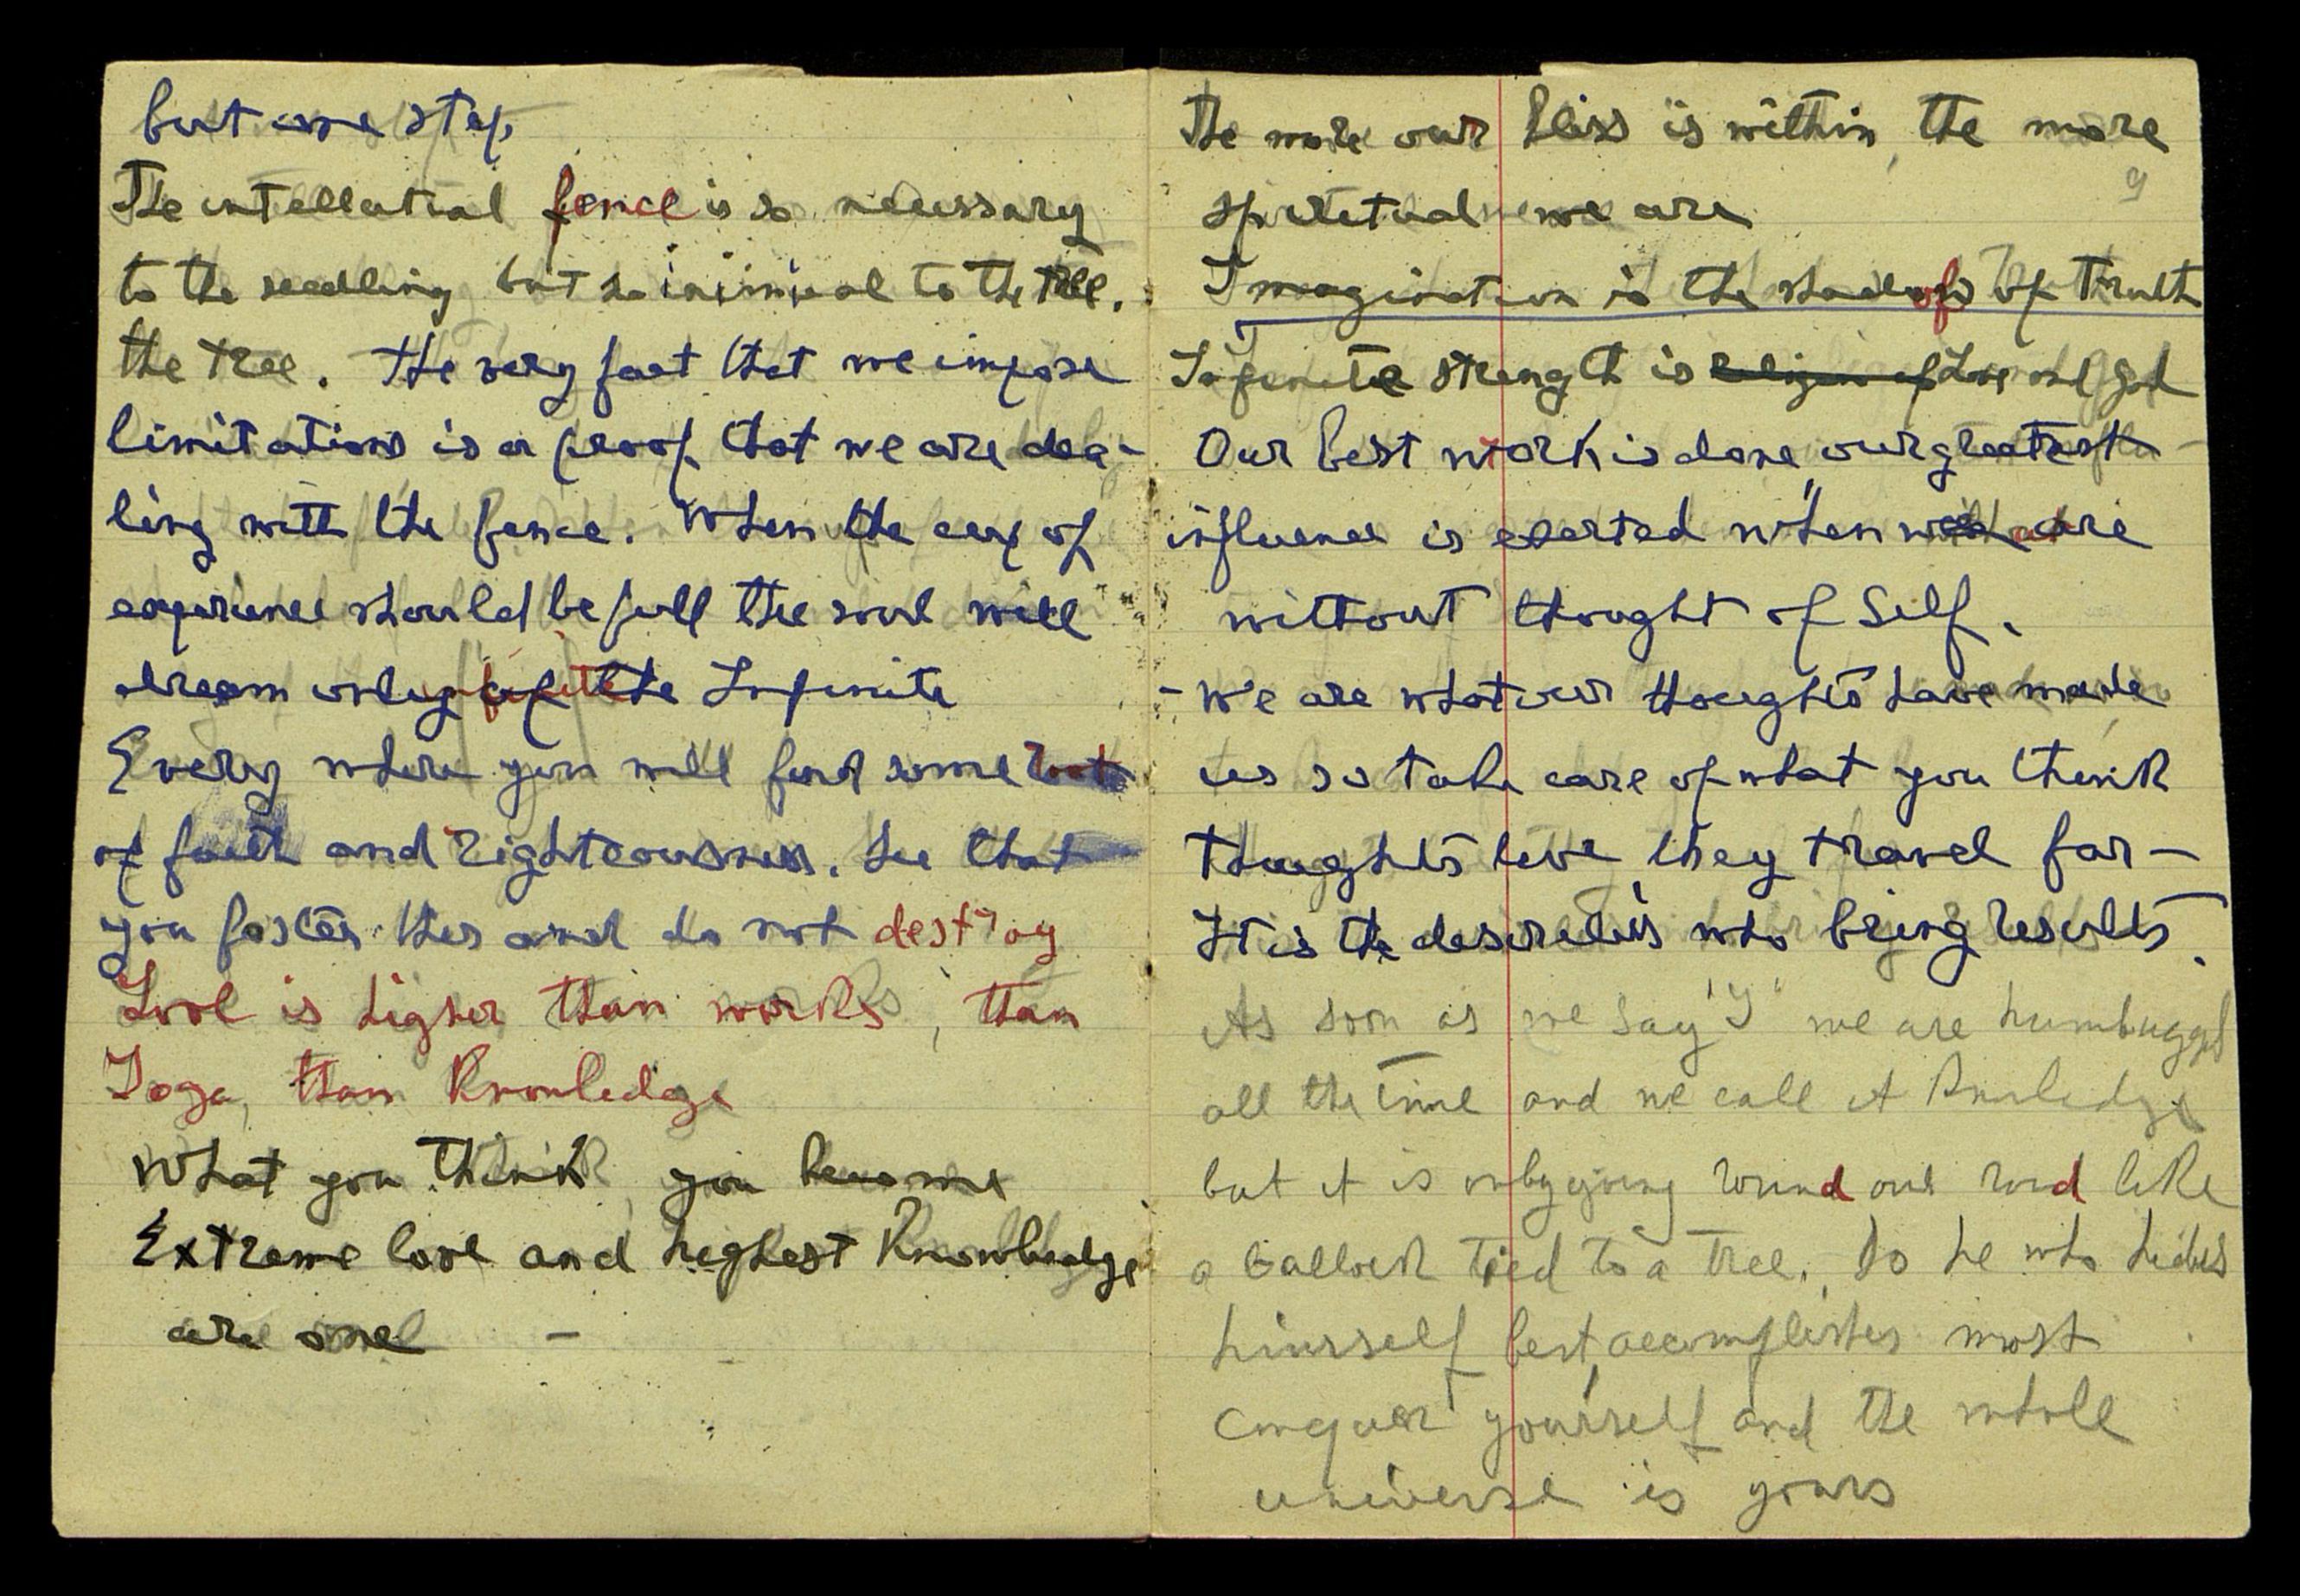 but one step
The intellectual fence is so necessary
to the seedling but so inimical to the tree.
the tree. The very fact that we impose
limitations is a proof that we are dea-
ling with the fence. When the cup of
experience should be full the soul will
dream only of the Infinite
Every where you will find some
of faith and righteousness. See that
you foster this and do not destroy
Love is higher than works, than
Yoga, than Knowledge
What you think, you become
Extreme love and highest Knowledge
are one –
The more our bliss is within, the more
9
spiritual we are
Imagination is the shadow of Truth
Infinite strength is Religion of Love and God
Our best work is done, our greatest
influence is exerted when we are
without thought of Self.
- We are what our thoughts have made
us so take care of what you think
thoughts live, they travel far –
It is the desireless who bring results.
As soon as we say "I" we are humbugged
all the time and we call it Knowledge
but it is only going round and round like
a bullock tied to a tree. So he who hides
himself best, accomplishes most
Conquer yourself and the whole
universe is yours